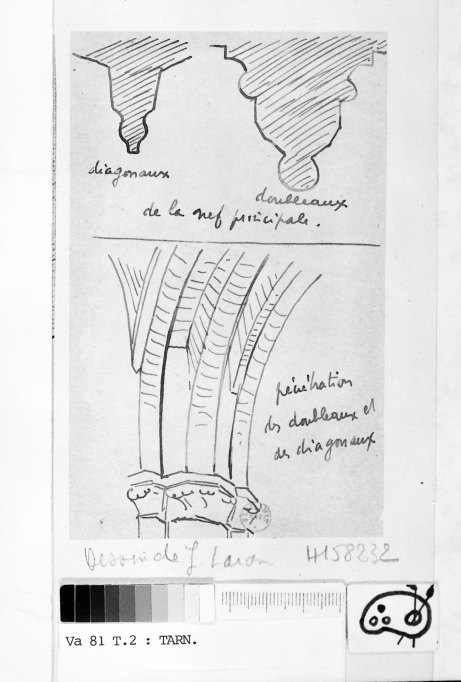 diagonaux
doubleaux
de la nef principale.
pénétration
des doubleaux et
des diagonaux
Dessin de J. Laran H158232
Va 81 T.2 : TARN.